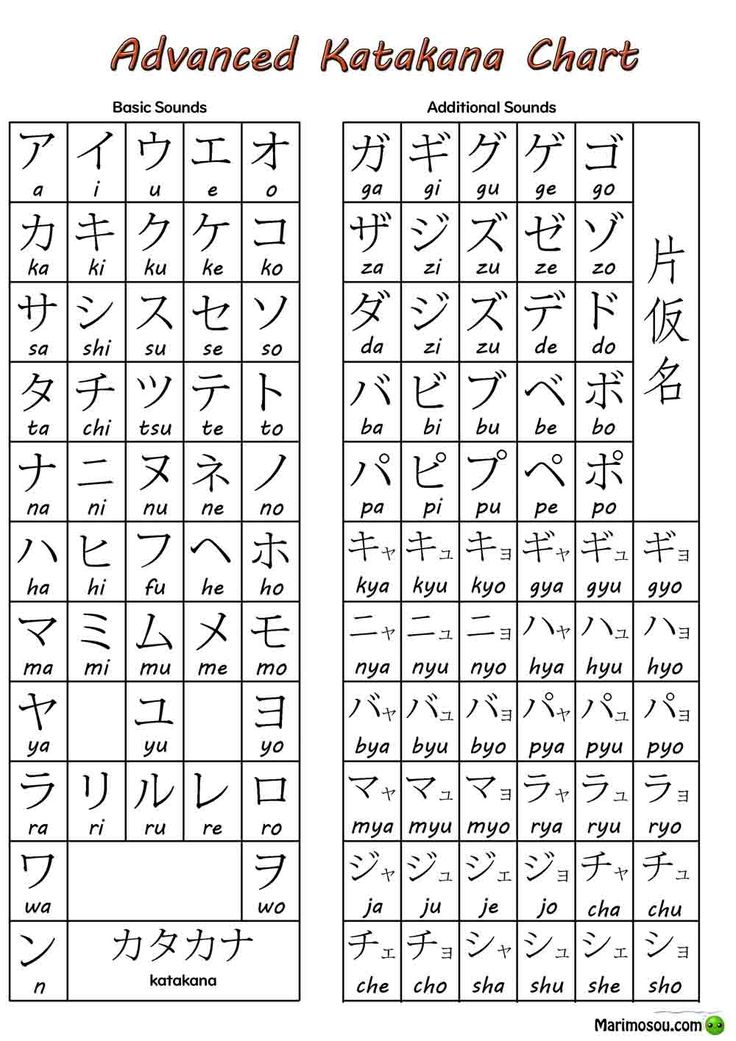 Advanced Katakana Chart
Basic Sounds
ア イ ウ エ オ
a i u e o
カ キ ク ケ コ
ka ki ku ke ko
サ シ ス セ ソ
sa shi su se so
タ チ ツ テ ト
ta chi tsu te to
ナ ニ ヌ ネ ノ
na ni nu ne no
ハ ヒ フ ヘ ホ
ha hi fu he ho
マ ミ ム メ モ
ma mi mu me mo
ヤ ユ ヨ
ya yu yo
ラ リ ル レ ロ
ra ri ru re ro
ワ ヲ
wa wo
ン カタカナ
n katakana
Additional Sounds
ガ ギ グ ゲ ゴ
ga gi gu ge go
ザ ジ ズ ゼ ゾ
za zi zu ze zo
ダ ジ ズ デ ド
da zi zu de do
バ ビ ブ ベ ボ
ba bi bu be bo
パ ピ プ ペ ポ
pa pi pu pe po
片仮名
キャ キュ キョ ギャ ギュ ギョ
kya kyu kyo gya gyu gyo
ニャ ニュ ニョ ハャ ハュ ハョ
nya nyu nyo hya hyu hyo
バャ バュ バョ パャ パュ パョ
bya byu byo pya pyu pyo
マャ マュ マョ ラャ ラュ ラョ
mya myu myo rya ryu ryo
ジャ ジュ ジェ ジョ チャ チュ
ja ju je jo cha chu
チェ チョ シャ シュ シェ ショ
che cho sha shu she sho
Marimosou.com